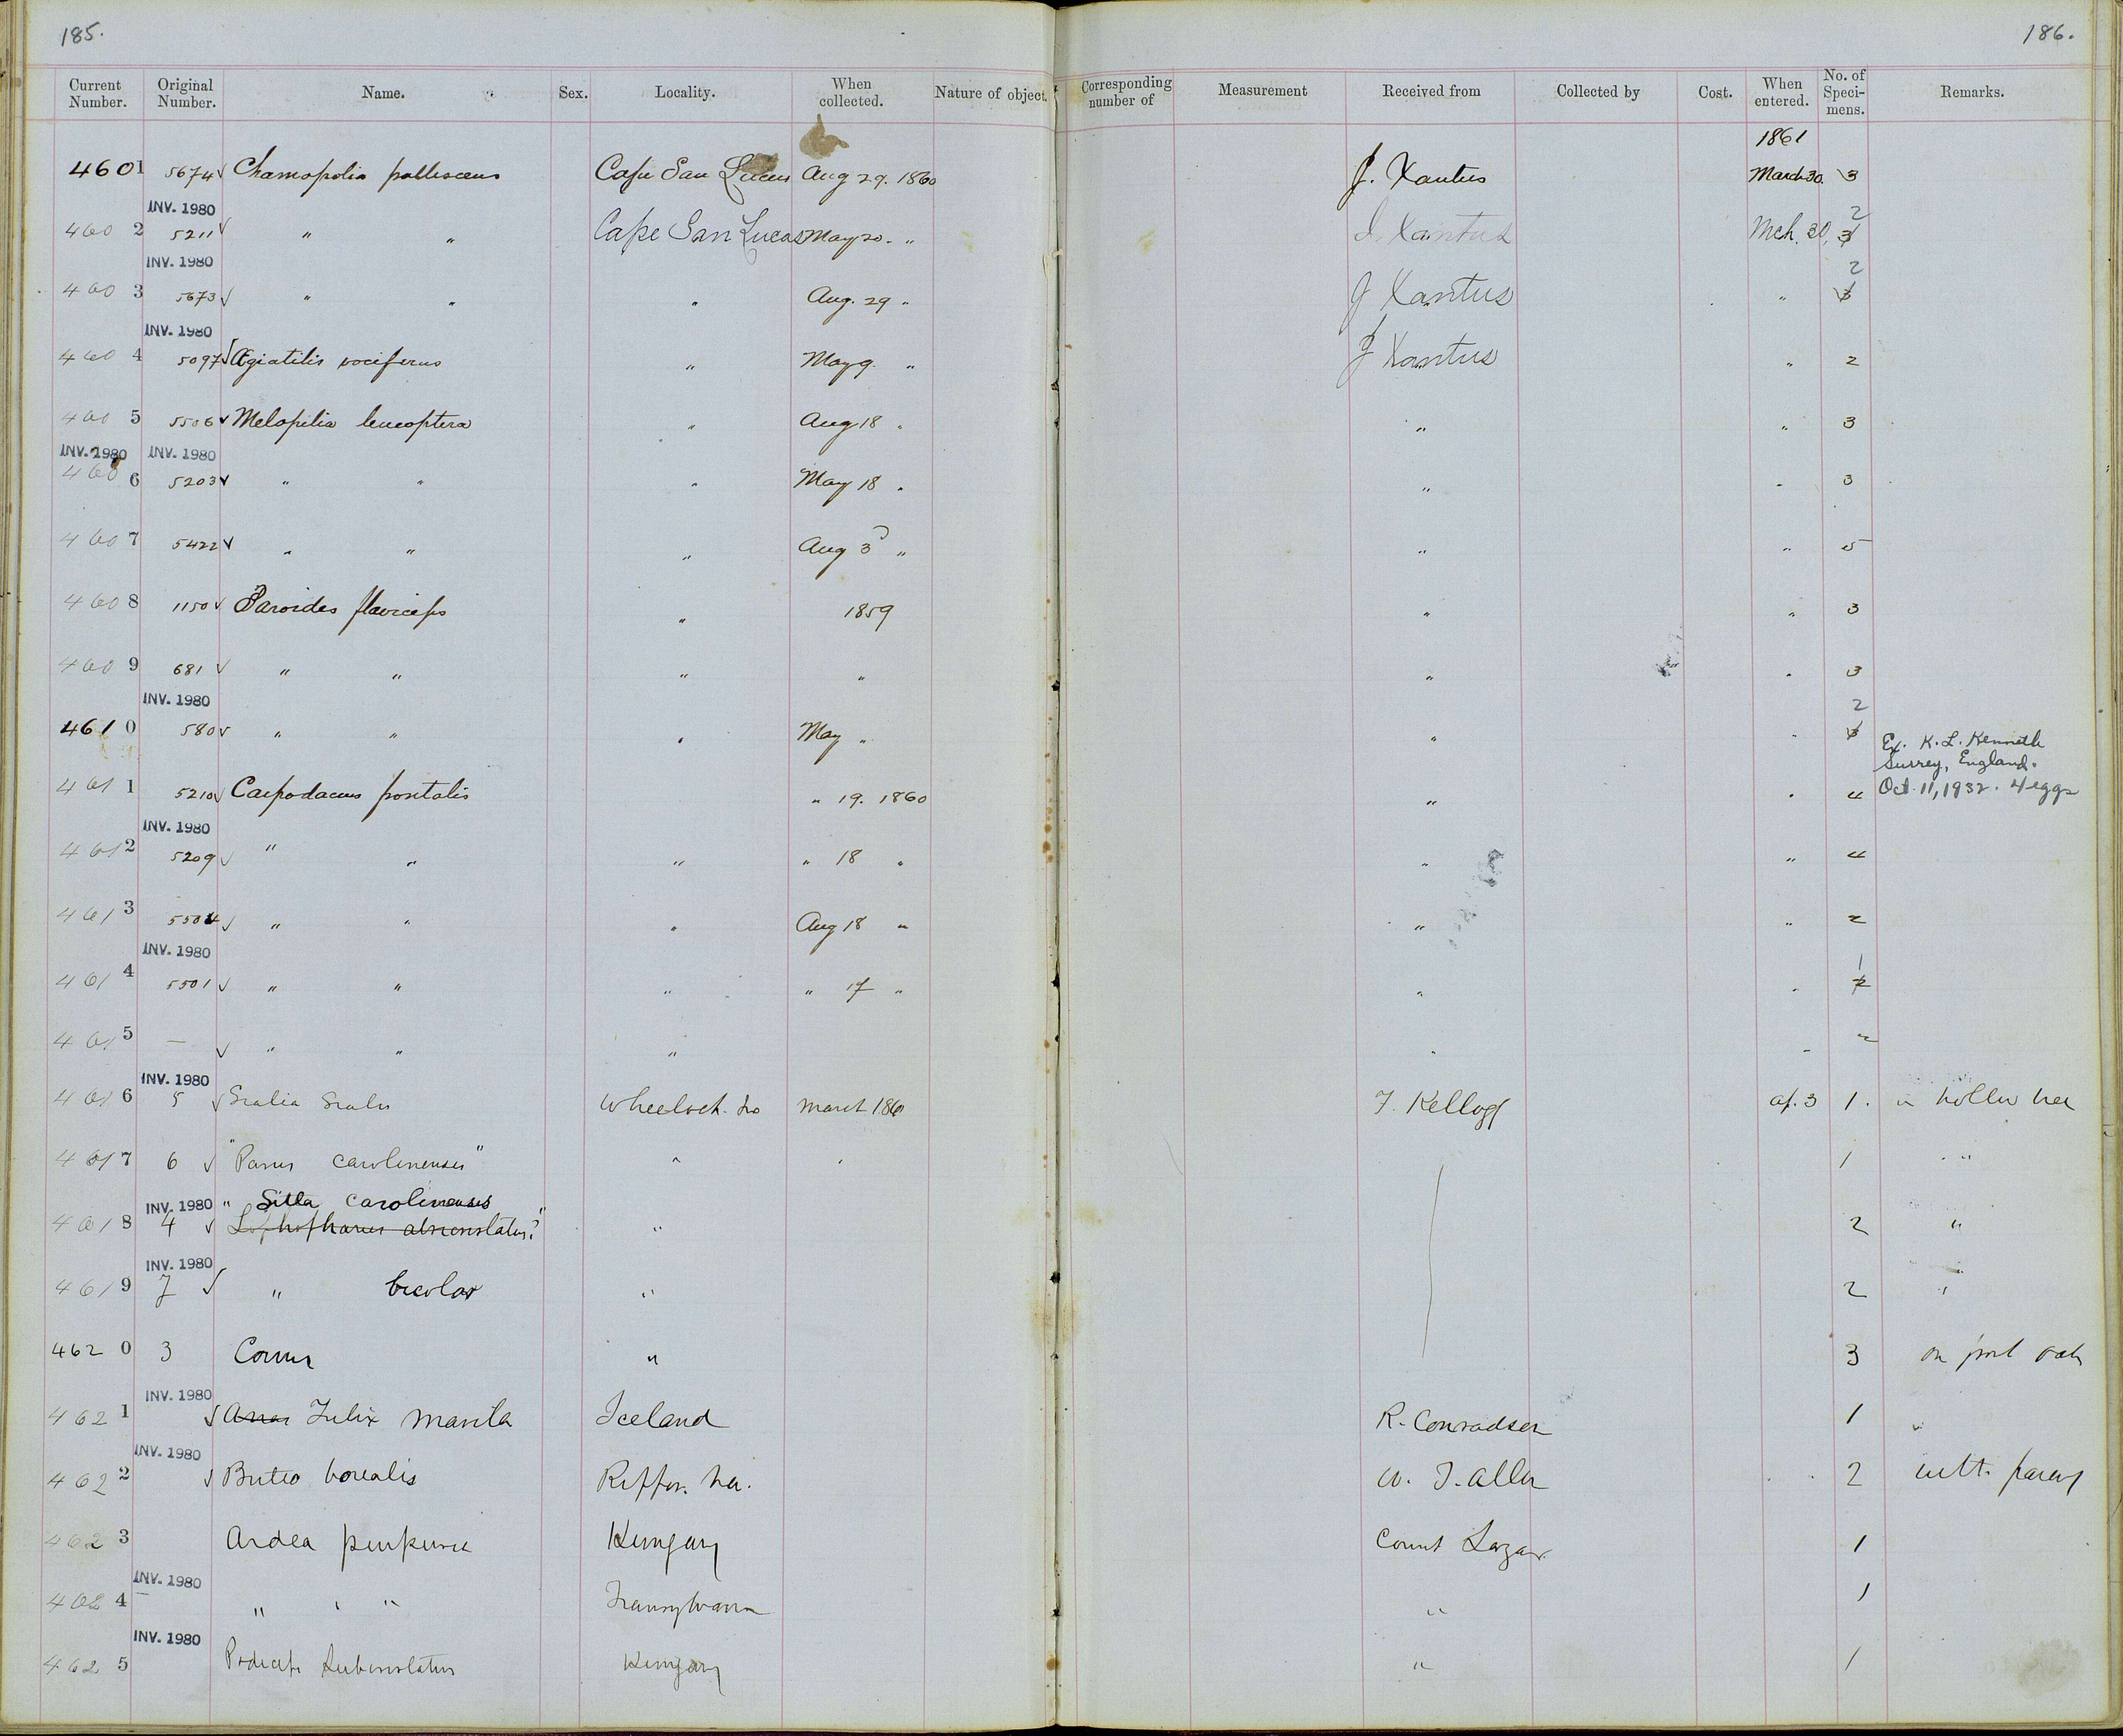 185.
186.
Current Number. Original Number. Name. Sex. Locality. When collected. Nature of object. Corresponding number of Measurement Received from Collected by Cost. When entered. No. of Specimens. Remarks.
1861
4601 5674 ✓ Chamopelia pallescens Cape San Lucas Aug 29. 1860 J. Xantus March 30. 3
INV. 1980 2
4602 5211 ✓ " " Cape San Lucas May 20. " J. Xantus Mch. 30, 3
INV. 1980 2
4603 5673 ✓ " " " Aug. 29 " J Xantus " 3
INV. 1980
4604 5097 ✓ Ægiatilis vociferus " May 9. " J Xantus " 2
4605 5506 ✓ Melopilia leucoptera " Aug 18 " " " 3
INV. 1980 INV. 1980
4606 5203 ✓ " " " May 18 " " " 3
4607 5422 ✓ " " " Aug 3 " " " 5
4608 1150 ✓ Paroides flaviceps " 1859 " " 3
4609 681 ✓ " " " " " " 3
INV. 1980 2
4610 580 ✓ " " " May " " " 3
Ex. K. L. Kenneth
Surrey, England.
Oct. 11, 1932. 4 eggs
4611 5210 ✓ Carpodacus frontalis " 19. 1860 " " 4
INV. 1980
4612 5209 ✓ " " " " 18 " " " 4
4613 5504 ✓ " " " Aug 18 " " " 2
INV. 1980 1
4614 5501 ✓ " " " " 17 " " " 2
4615 — ✓ " " " " " 2
INV. 1980
4616 5 ✓ Sialia Sialis Wheelock. March 1861 F. Kellogg ap. 3 1. in hollow tree
4617 6 ✓ "Parus carolinensis" " " 1 "
INV. 1980 " Sitta carolinensis "
4618 4 ✓ Lophophanes atricristatus? " 2 "
INV. 1980
4619 7 ✓ " bicolor " 2 "
4620 3 Corvus " 3 on post oak
INV. 1980
4621 ✓ Anas Fulix Marila Iceland R. Conradsen 1 "
INV. 1980
4622 ✓ Buteo borealis W. J. Allen 2 with parent
4623 Ardea purpurea Hungary Count Lazar 1
INV. 1980
4624 — " " " Transylvania " 1
INV. 1980
4625 Podiceps subcristatus Hungary " 1